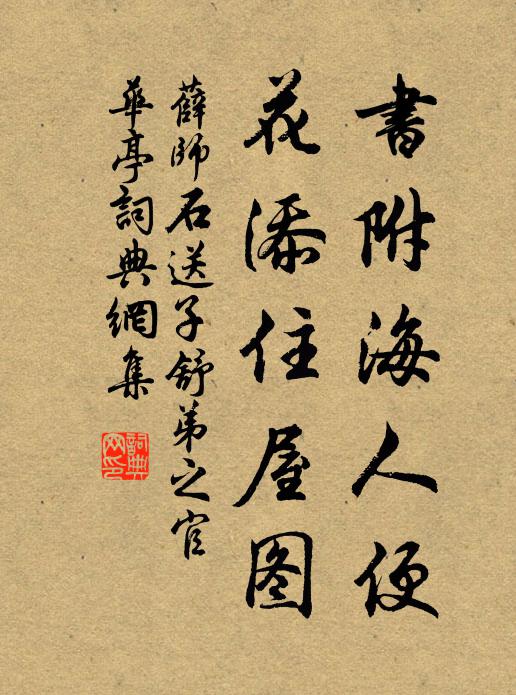 書附海人便
花添住屋图
薛師石送子舒弟之官
華亭詞典網集
詞典网印